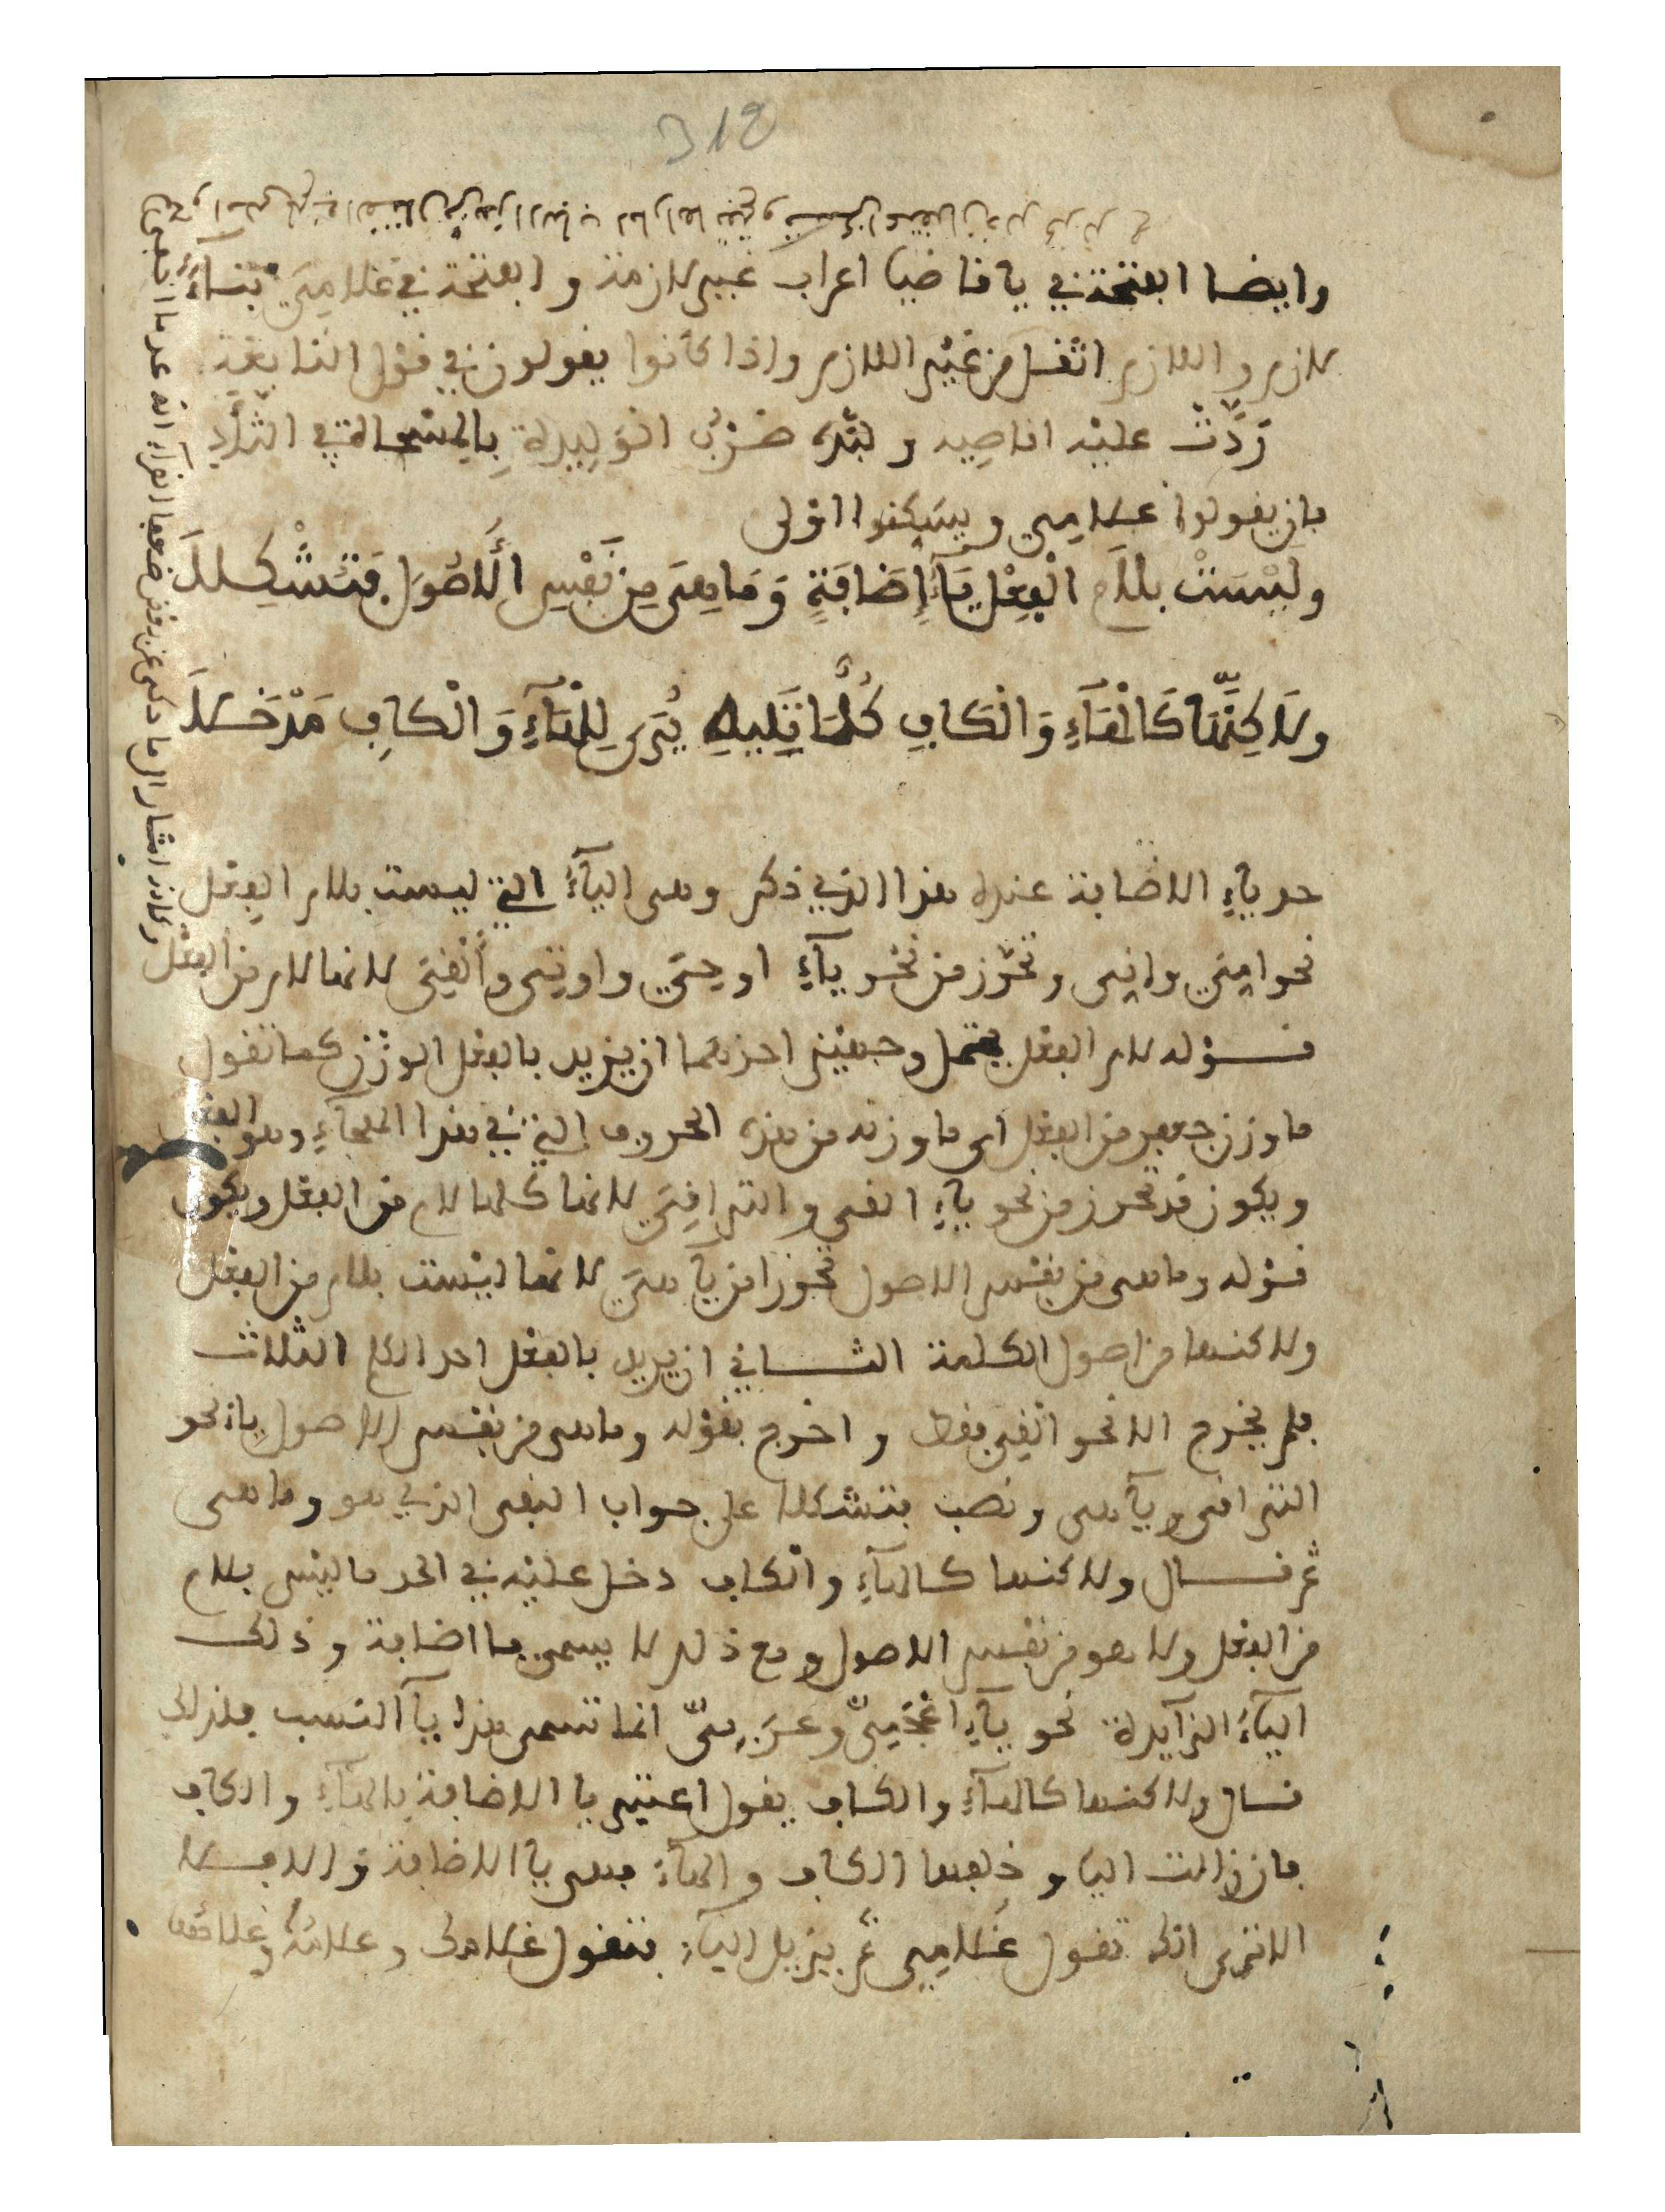 318
وايضا الفتحة في يا قاضيا اعراب غير لازمة والفتحة في غلامي بناء
لازم واللازم اثقل من غير اللازم واذا كانوا يقولون في قول النابغة
رَدَّت عليه اقاصيه ولبّده ضرب الوليدة بالمسحاة في الثأد
فان يقولوا غلامي ويسكنوا اولى
وَلَيْسَتْ بلام الْفِعْلِ يَاءُ إِضَافَةٍ وَمَا هِيَ مِن نَّفْسِ الُاصُولِ فَتُشْكِلَا
وَلَاكِنَّهَا كَالْهَاءِ وَالْكَافِ كُلُّ مَا تَلِيهِ يُرَى لِلْهَاءِ وَالْكَافِ مَدْخَلَا
حد ياء الاضافة عنده هذا الذي ذكر وهي الياء التي ليست بلام الفعل
نحو اني واني وتحرز من نحو ياء اوحي واوتي وألقي لانها لام من الفعل
قوله لام الفعل يحتمل وجهين احدهما ان يريد بالفعل الوزن كما تقول
ما وزن جعفر من الفعل اي ما وزنه من هذه الحروف التي في هذا الهجاء وهو الفعل
ويكون قد تحرز من نحو ياء القي والتراقي لانها كلها لام من الفعل ويكون
قوله وما هي من نفس الاصول تحرزا من يا هي لانها ليست بلام من الفعل
ولاكنها من اصول الكلمة الثاني ان يريد بالفعل احد الكلم الثلاث
فلم يخرج الا نحو القي فقط واخرج بقوله وما هي من نفس الاصول يا نحو
التراقي ويا هي ونصب فتشكلا على جواب النفي الذي هو وما هي
ثم قال ولاكنها كالهاء والكاف دخل عليه في الحد ما ليس بلام
من الفعل ولا هو من نفس الاصول ومع ذلك لا يسمى يا اضافة وذلك
الياء الزائدة نحو ياء اعجميّ وعربيّ انما تسمى هذه يا النسب فلذلك
قال ولاكنها كالهاء والكاف يقول اعتبر يا الاضافة بالهاء والكاف
فان زالت اليا وخلفها الكاف والهاء فهي يا الاضافة والا فلا
الا ترى انك تقول غلامي ثم يزيل الياء فتقول غلامك وغلامه وغلامها